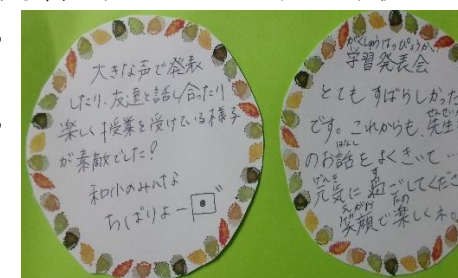 大きな声で発表
したり、友達と話し合ったり
楽しく授業を受けている様子
が素敵でした!
和小のみんな
ちばりよー
がくしゅうはっぴょうかい
学習発表会
とてもすばらしかった
です。これからも、先生
のお話をよくきいて
元気に過ごしてくださ
笑顔で楽しくネ。